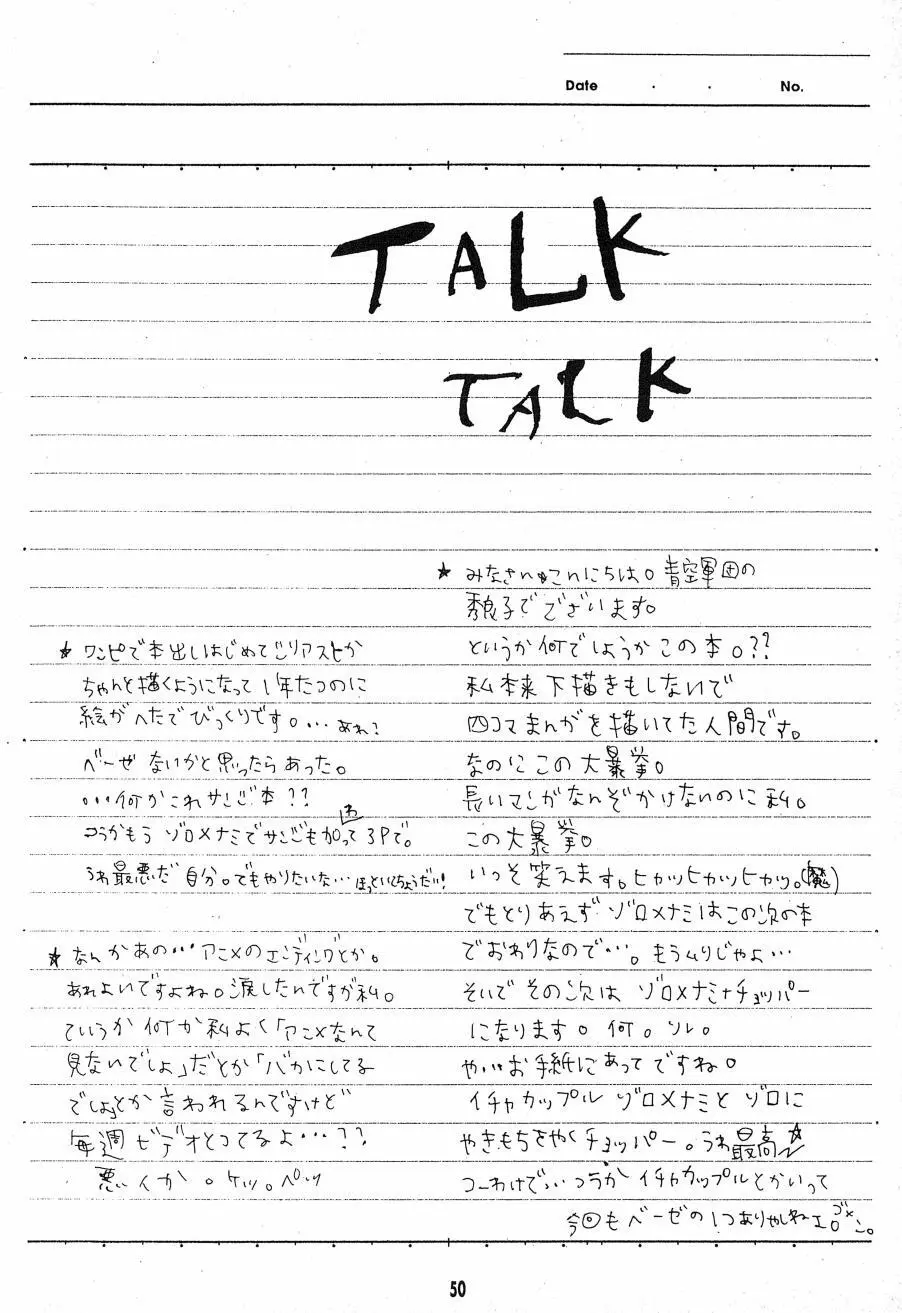 Date ・ ・ No.
TALK
TALK
★ みなさんこんにちは。青空軍団の
秀良子でございます。
というか何でしょうかこの本。??
私本来下描きもしないで
四コマまんがを描いてた人間です。
なのにこの大暴挙。
長いマンガなんぞかけないのに私。
この大暴挙。
いっそ笑えます。ヒカッヒカッヒカッ。(魔)
でもとりあえずゾロ×ナミはこの次の本
でおわりなので…。もうムリじゃよ…
そいでその次は ゾロ×ナミ+チョッパー
になります。何。ソレ。
やいいお手紙にあってですね。
イチャカップルゾロ×ナミとゾロに
やきもちをやくチョッパー。うわ最高★
つーわけで…つうかイチャカップルとかいって
今回もベーゼの1つありゃしねェ。ゴメン。
★ ワンピで本出しはじめて
ちゃんと描くようになって1年たつのに
絵がへたでびっくりです。…あれ?
ベーゼないかと思ったらあった。
…何かこれサンジ本??
つうかもうゾロ×ナミでサンジも加わって3Pで。
うわ最悪だ自分。でもやりたいな…ほっといてちょうだい!
★ なんかあの…アニメのエンディングとか。
あれよいですよね。涙したんですが私。
ていうか何か私よく「アニメなんて
見ないでしょ」だとか「バカにしてる
でしょ」とか言われるんですけど
毎週ビデオとってるよ…??
悪いか。ケッ。ペッ
50